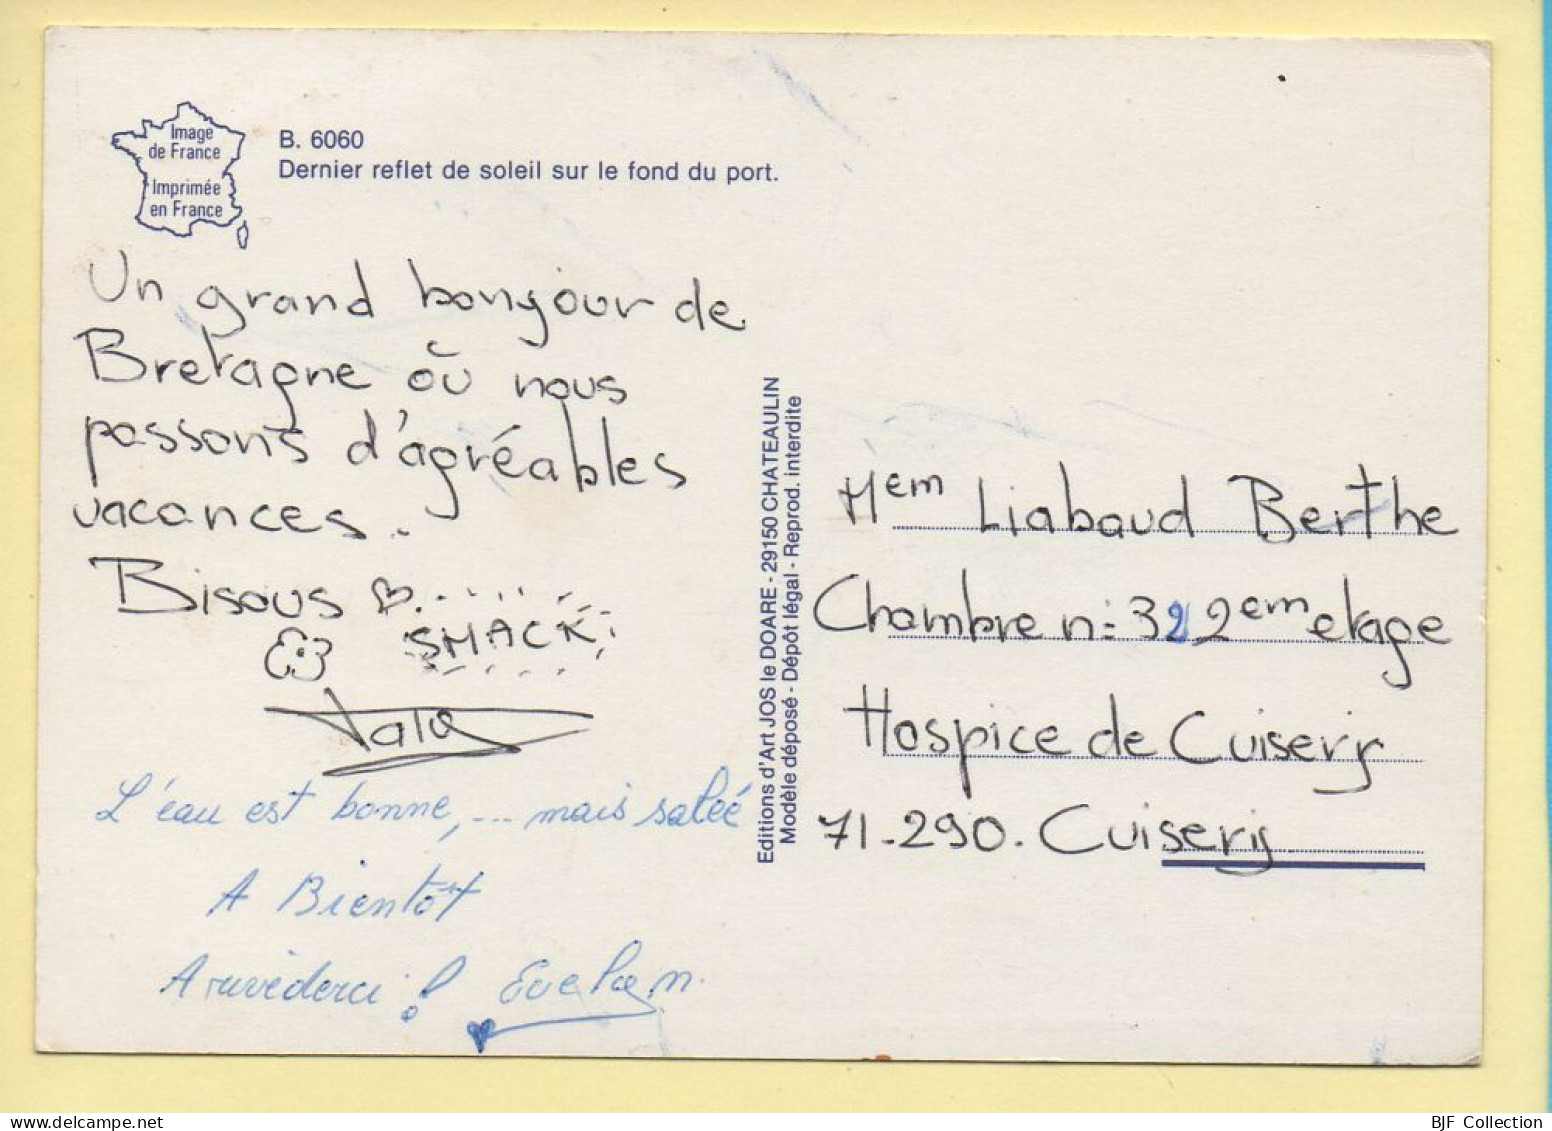 Image
de France
Imprimée
en France
B. 6060
Dernier reflet de soleil sur le fond du port.
Un grand bonjour de
Bretagne où nous
passons d'agréables
vacances.
Bisous
SMACK
L'eau est bonne, ... mais salée
A Bientôt
Arrivéderci !
Editions d'Art JOS le DOARE - 29150 CHATEAULIN
Modèle déposé - Dépôt légal - Reprod. interdite
Mem Liabaud Berthe
Chambre n: 322em etage
Hospice de Cuisery
71-290. Cuisery
BJF Collection